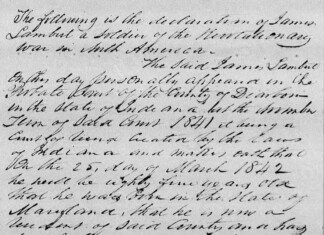 The following is the declaration of James
Lambert a Soldier of the Revolutionary
War in North America
The Said James Lambert
on this day personally appeared in the
Probate Court of the County of Dearborn
in the State of Indiana at the November
Term of Said Court 1841, it being a
Court of created by the Laws
of Indiana and makes oath that
on the 25, day of March 1842
he will be eighty five years old
that he was born in the State of
Maryland, that he is now a
of Said County, and has